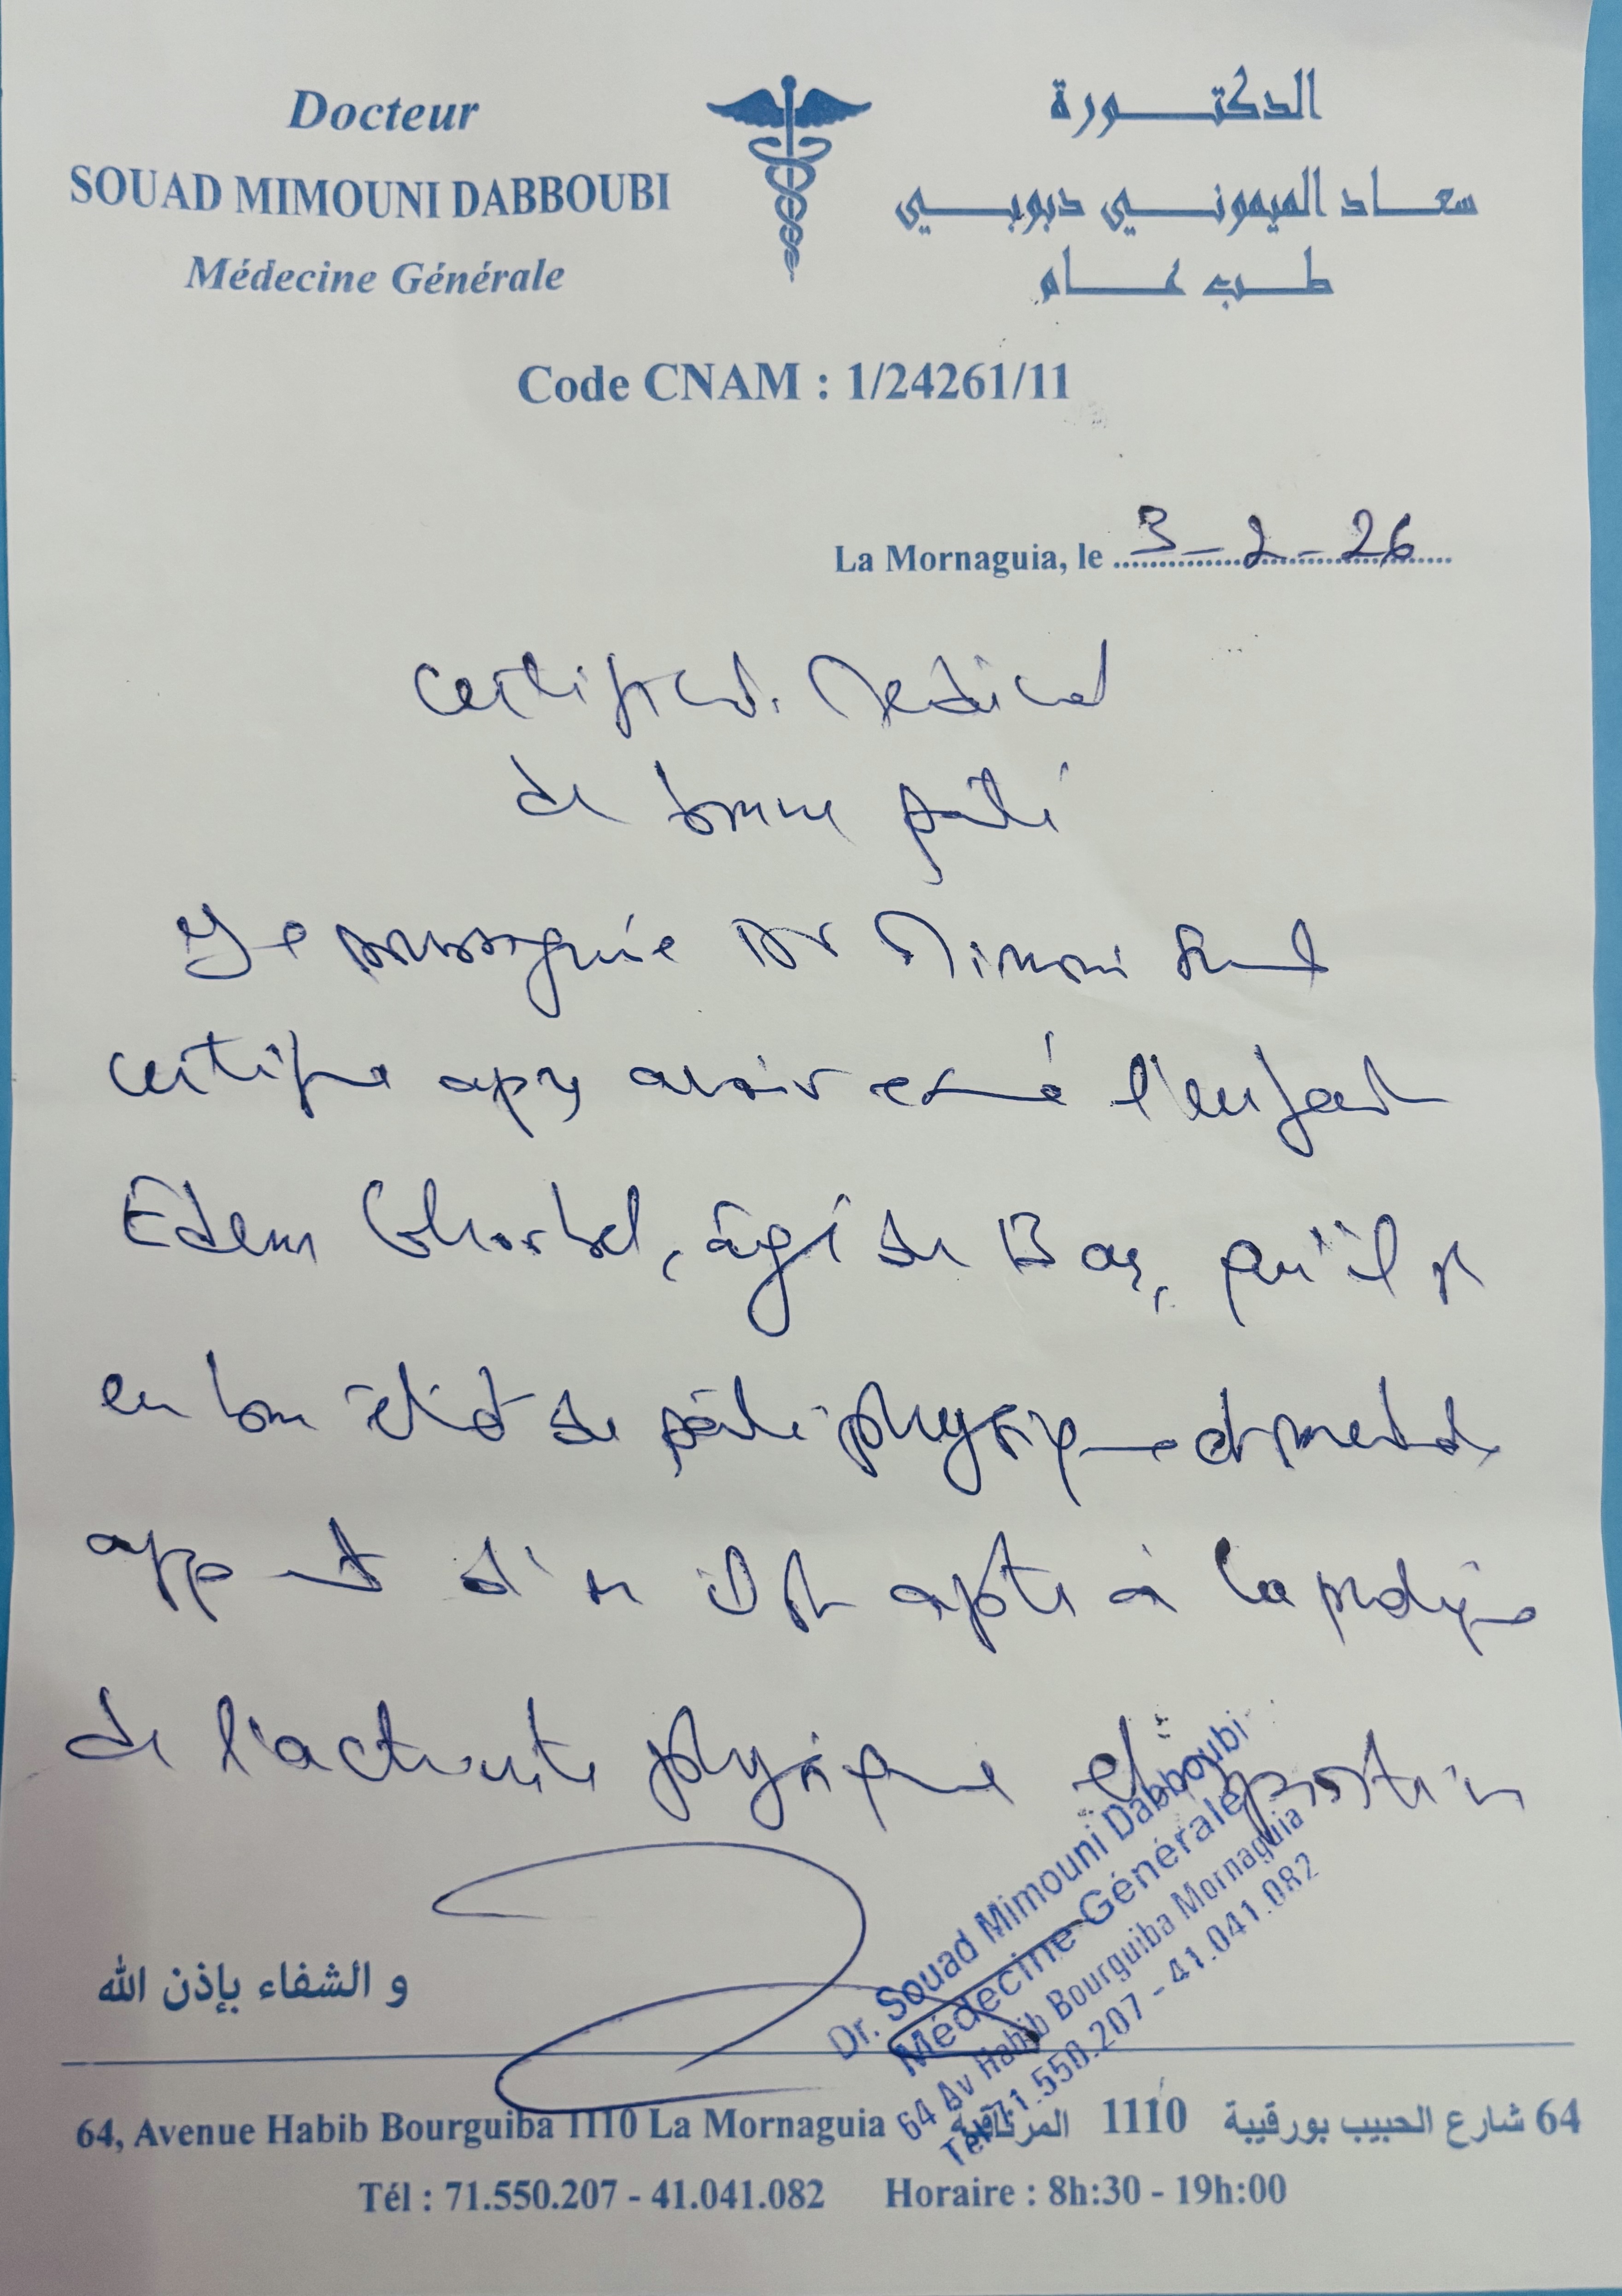 Docteur
SOUAD MIMOUNI DABBOUBI
Médecine Générale
الدكتورة
سعاد الميموني دبوبي
طب عام
Code CNAM : 1/24261/11
La Mornaguia, le 3-2-26
Certificat Médical
de bonne santé
Je soussignée Dr Mimouni Souad
certifie après avoir examiné l'enfant
Edem Ghorbel, âgé de 13 ans, qu'il est
en bon état de santé physique et mentale
apparent d'où il est apte à la pratique
de l'activité physique et sportive
Dr. Souad Mimouni Dabboubi
Médecine Générale
64 Av Habib Bourguiba Mornaguia
Tél: 71.550.207 - 41.041.082
و الشفاء بإذن الله
64, Avenue Habib Bourguiba 1110 La Mornaguia
64 شارع الحبيب بورقيبة 1110 المرناقية
Tél : 71.550.207 - 41.041.082 Horaire : 8h:30 - 19h:00